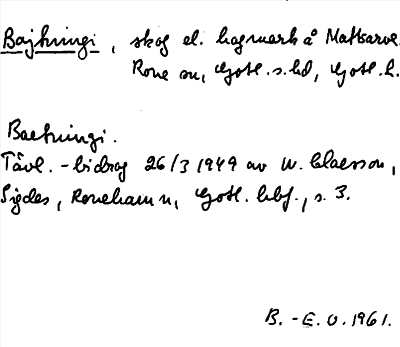 Bajhningi, skog el. hagmark å Mattsarve
Rone sn, Gotl. s. hd, Gotl. l.
Baehningi.
Tävl.-bidrag 26/3 1949 av W. Claesson,
Sigdes, Ronehamn, Gotl. hbf., s. 3.
B.-E. O. 1961.